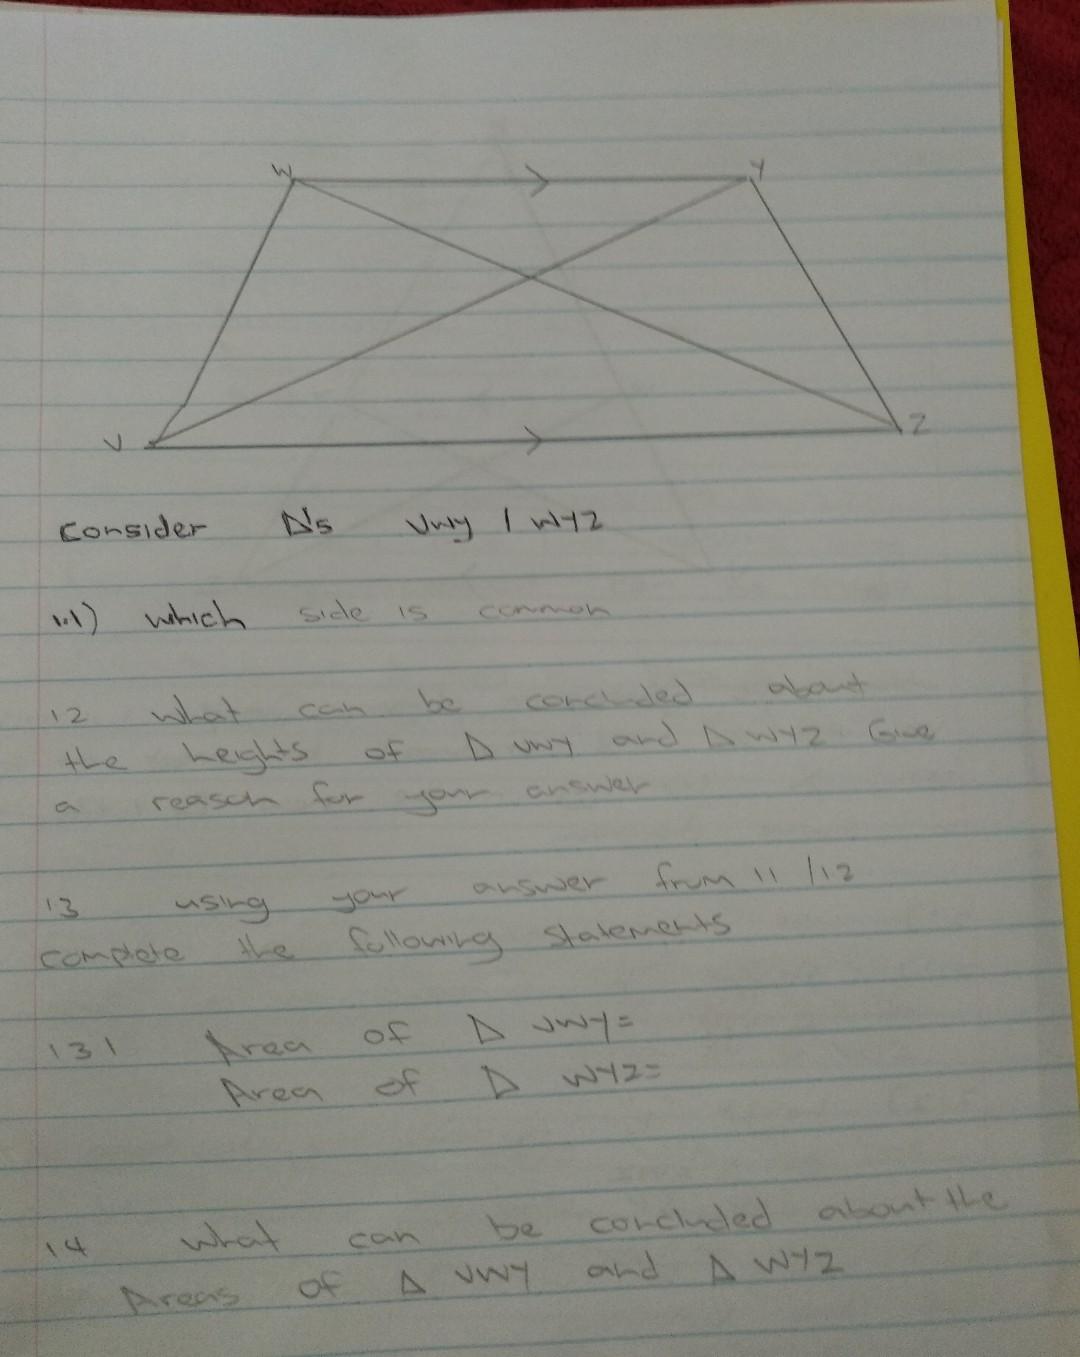 W Y
V Z
Consider Δ's VWY / WYZ
1.1) which side is common
1.2 what can be concluded about
the heights of Δ VWY and Δ WYZ Give
a reason for your answer
1.3 using your answer from 1.1 / 1.2
complete the following statements
1.3.1 Area of Δ VWY =
Area of Δ WYZ =
1.4 what can be concluded about the
Areas of Δ VWY and Δ WYZ